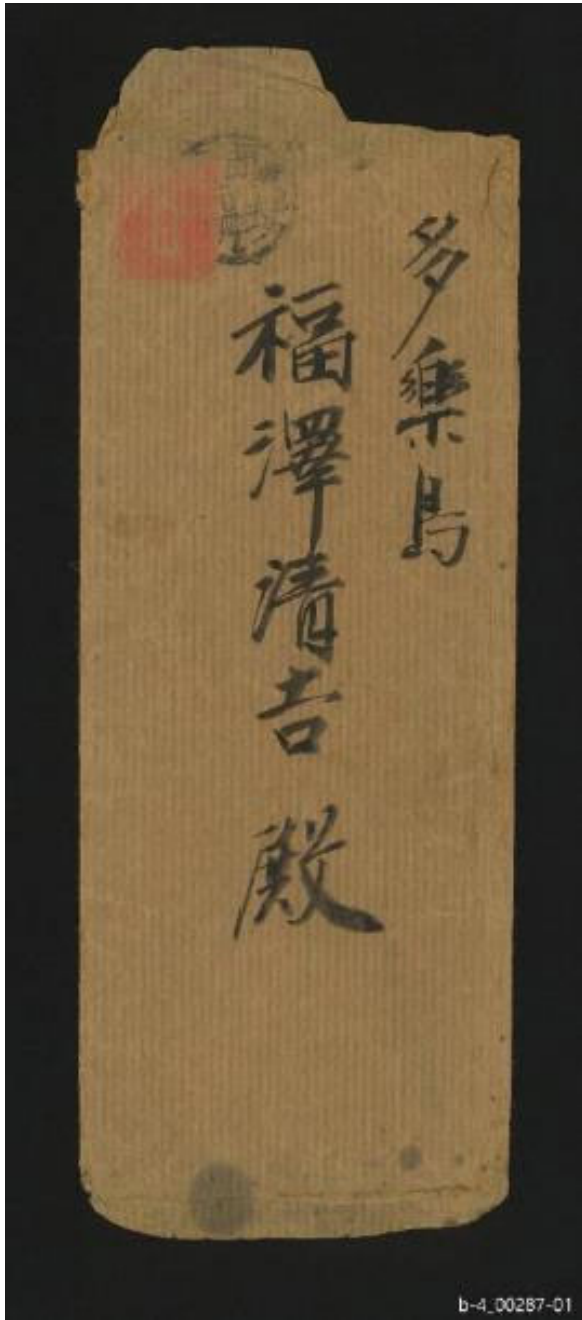 多樂島
福澤清吉殿
b-4_00287-01